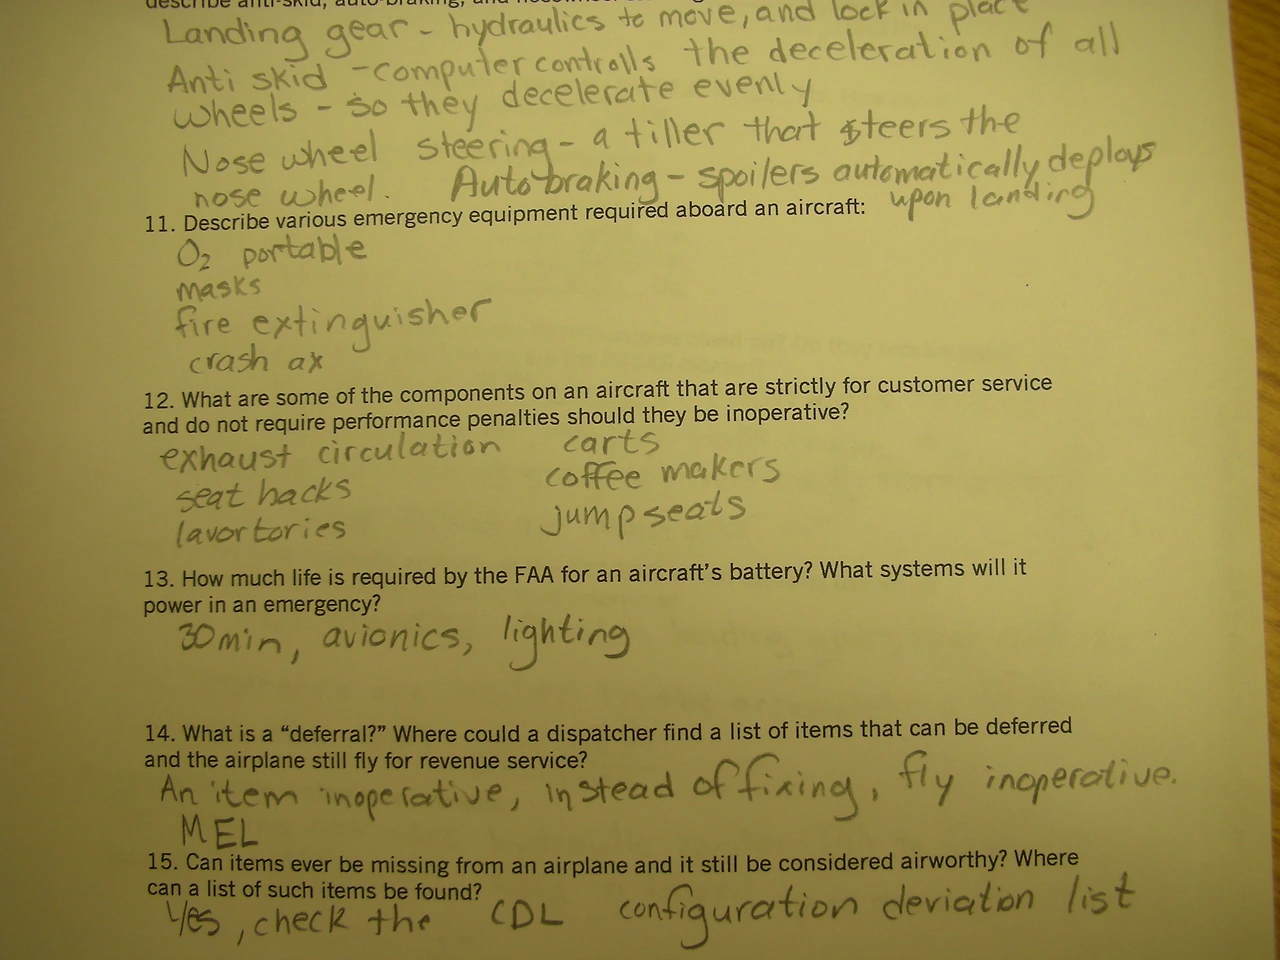 describe anti-skid, auto-braking, and nosewheel
Landing gear - hydraulics to move, and lock in place
Anti skid - computer controlls the deceleration of all
wheels - so they decelerate evenly
Nose wheel steering - a tiller that steers the
nose wheel. Auto braking - spoilers automatically deploys
upon landing
11. Describe various emergency equipment required aboard an aircraft:
O₂ portable
masks
fire extinguisher
crash ax
12. What are some of the components on an aircraft that are strictly for customer service
and do not require performance penalties should they be inoperative?
exhaust circulation
seat backs
lavortories
carts
coffee makers
jumpseats
13. How much life is required by the FAA for an aircraft's battery? What systems will it
power in an emergency?
30min, avionics, lighting
14. What is a “deferral?” Where could a dispatcher find a list of items that can be deferred
and the airplane still fly for revenue service?
An item inoperative, instead of fixing, fly inoperative.
MEL
15. Can items ever be missing from an airplane and it still be considered airworthy? Where
can a list of such items be found?
Yes, check the CDL configuration deviation list